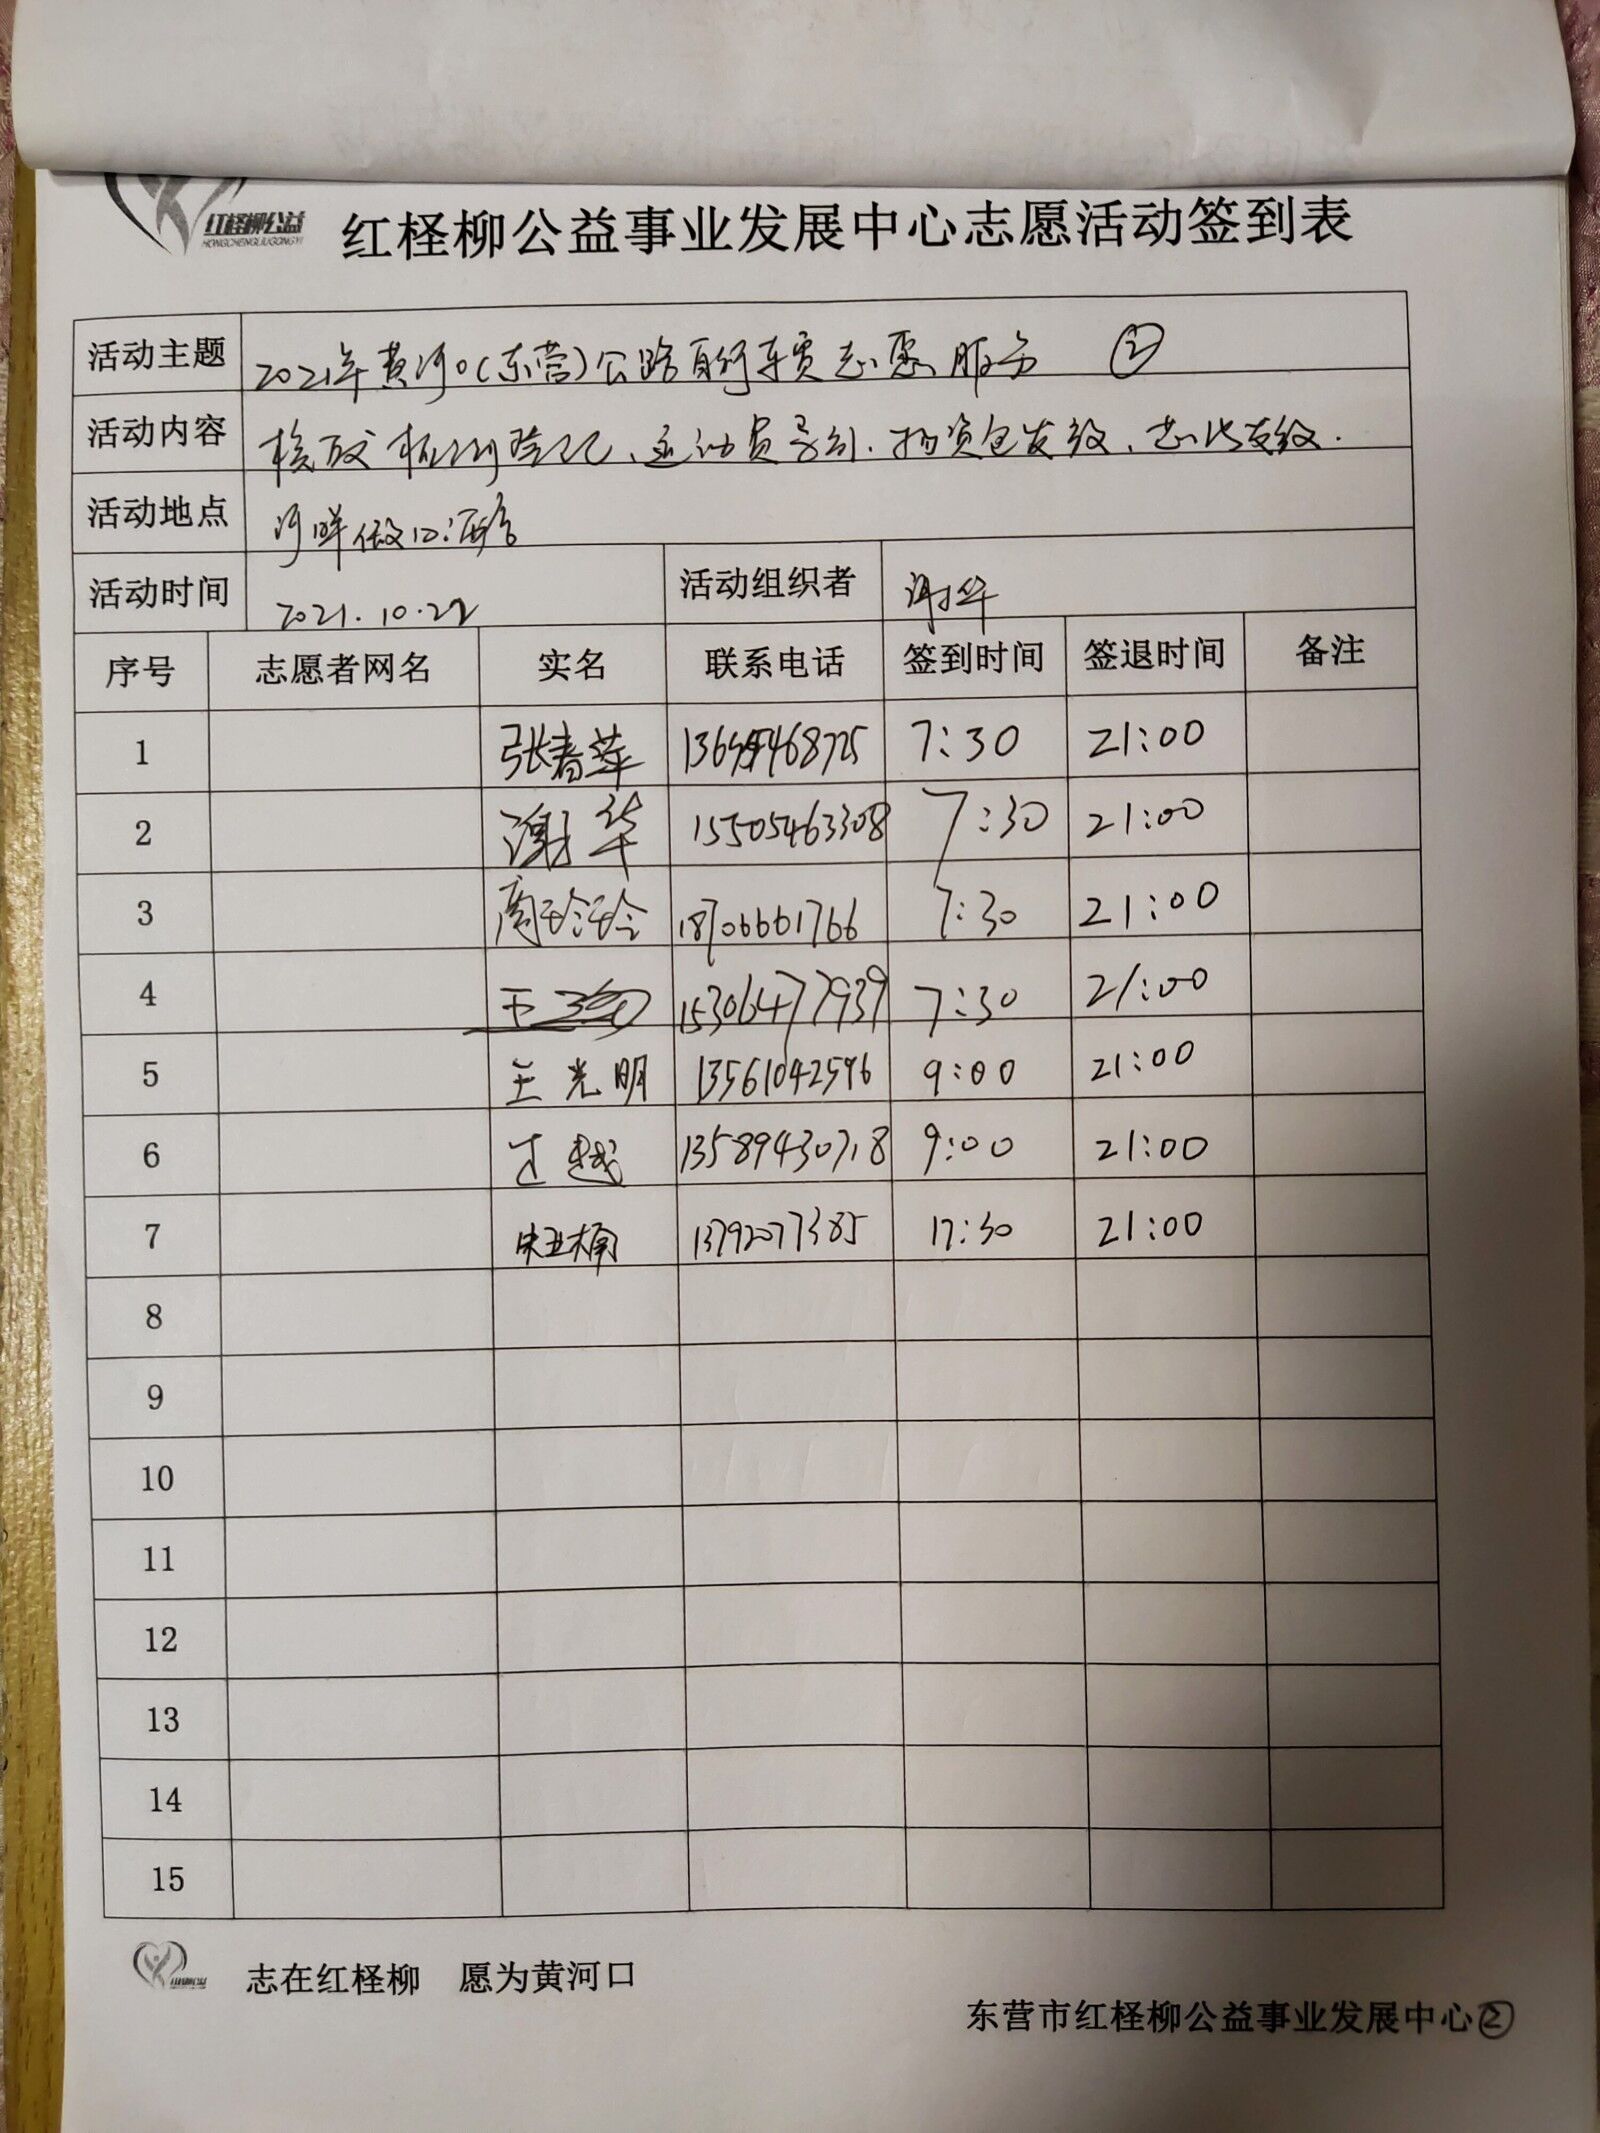 红柽柳公益
HONGCHENGLIUGONGYI
红柽柳公益事业发展中心志愿活动签到表
活动主题 2021年黄河口(东营)公路自行车赛志愿服务 ②
活动内容 核酸检测登记、运动员导引、物资包发放、
活动地点
活动时间 2021.10.22 活动组织者 谢华
序号 志愿者网名 实名 联系电话 签到时间 签退时间 备注
1 张春萍 7:30 21:00
2 谢华 15505463308 7:30 21:00
3 周玲玲 18706661766 7:30 21:00
4 15306477939 7:30 21:00
5 王光明 13561042596 9:00 21:00
6 13589430718 9:00 21:00
7 宋亚楠 13792077385 17:30 21:00
8
9
10
11
12
13
14
15
志在红柽柳 愿为黄河口
东营市红柽柳公益事业发展中心②